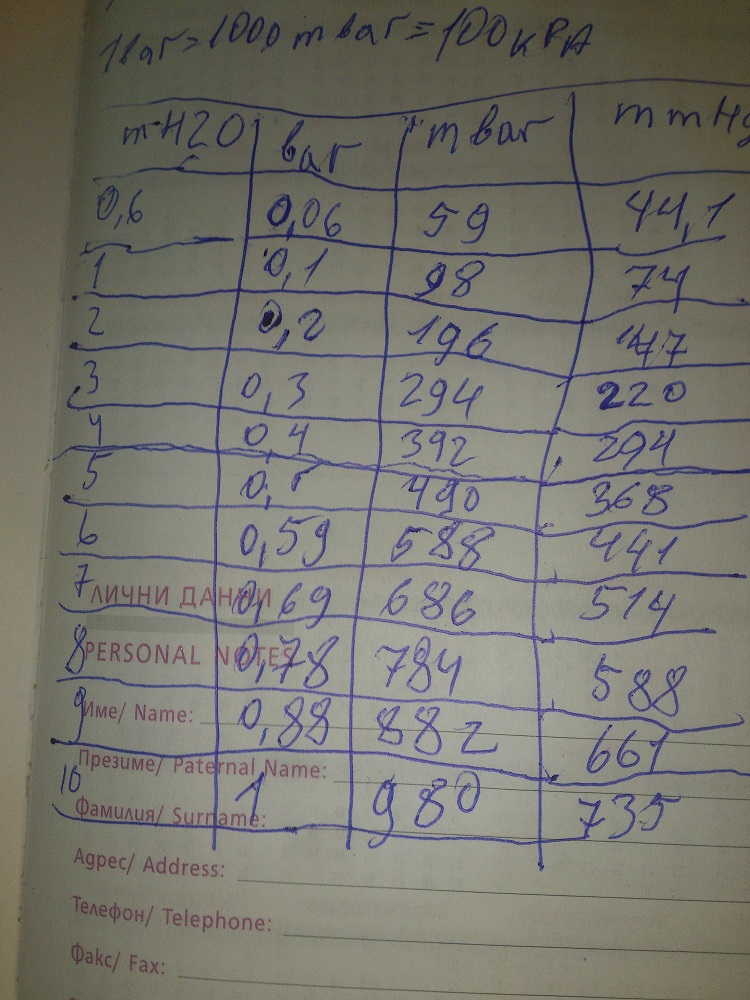 1 bar = 1000 mbar = 100 kPA
mH2O bar mbar mmHg
0,6 0,06 59 44,1
1 0,1 98 74
2 0,2 196 147
3 0,3 294 220
4 0,4 392 294
5 0,5 490 368
6 0,59 588 441
7 0,69 686 514
ЛИЧНИ ДАННИ
8 0,78 784 588
PERSONAL NOTES
9 0,88 882 661
Име/ Name:
10 1 980 735
Презиме/ Paternal Name:
Фамилия/ Surname:
Адрес/ Address:
Телефон/ Telephone:
Факс/ Fax: